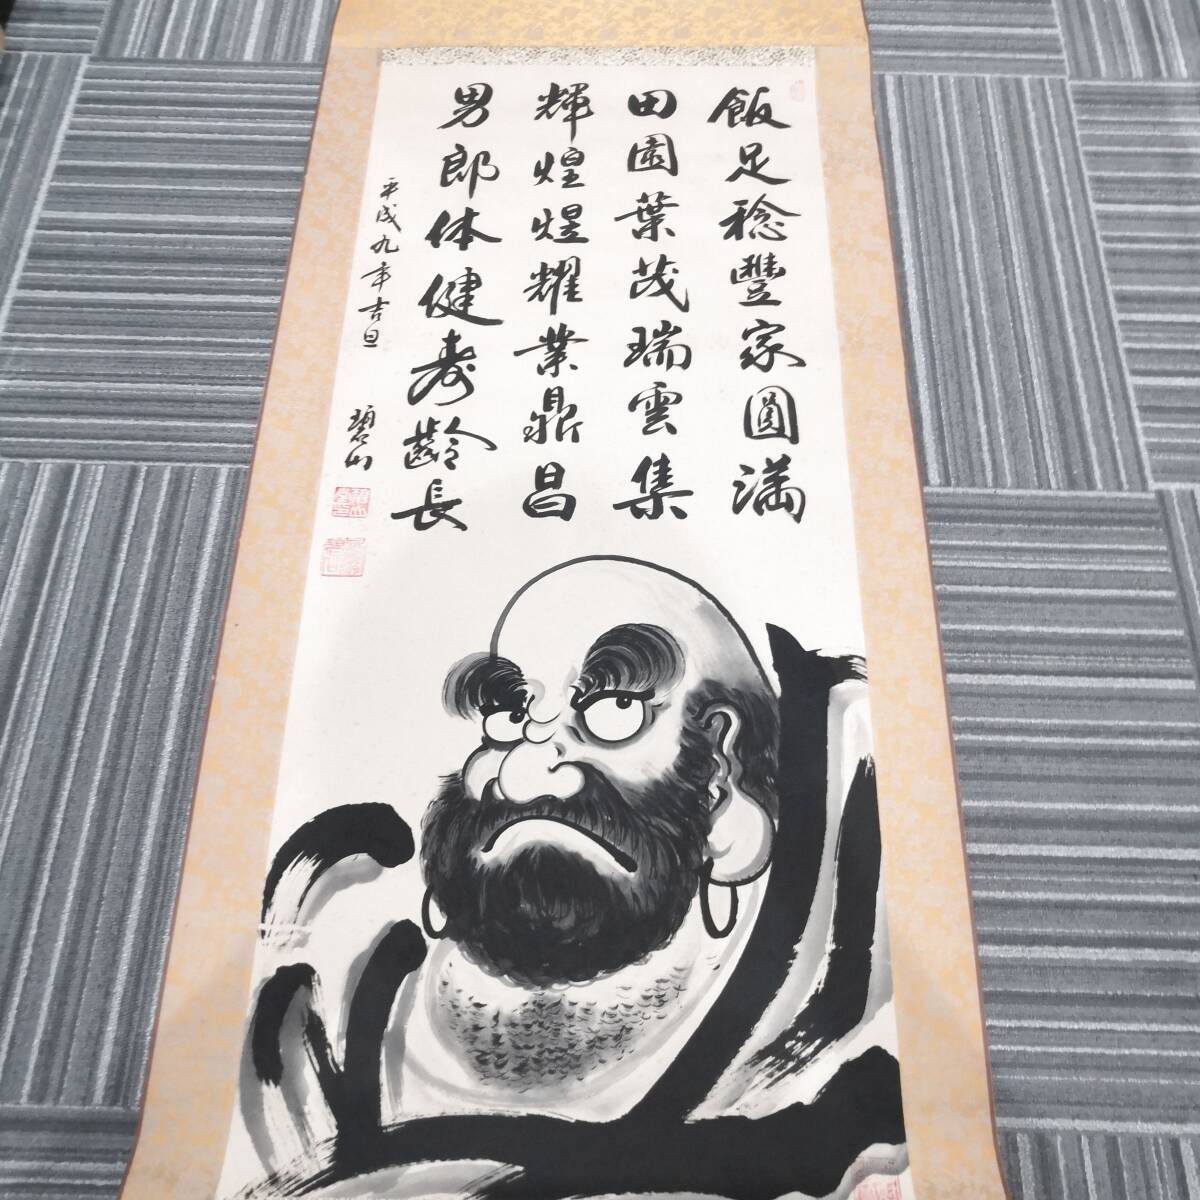 飯足稔豐家圓満
田園葉茂瑞雲集
輝煌煜耀業鼎昌
男郎体健寿齢長
平成九年吉旦
碧山